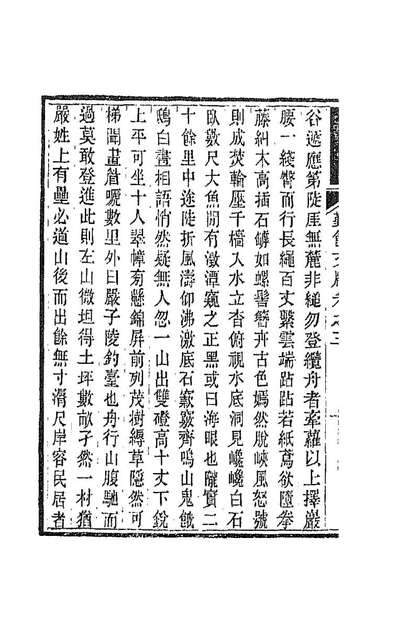 谷遞應第陡厓無麓非縋勿登纜舟者牽蘿以上擇巖
腰一綫膋而行長繩百丈繫雲端跕跕若紙鳶欲隨拳
藤糾木高插石罅如螺髻簪卉古色嫣然脫峽風怒號
則成焚輪壓千檣入水立杳俯視水底洞見巉巉白石
臥數尺大魚閒有激潭窺之正黑或曰海眼也隴竇二
十餘里中途陡折風濤仰沸激底石竅竅齊鳴山鬼餓
鴟白晝相語悄然疑無人忽一山出雙磴高十丈下銳
上平可坐十人翠幛匊懸錦屏前列茂樹縟草隱然可
梯聞晝眢嚦數里外曰嚴子陵釣臺也舟行山腹馳而
過莫敢登進此則左山微坦得土坪數畝孑然一村猶
嚴姓上有壘必道山後而出餘無寸滑尺岸容民居者